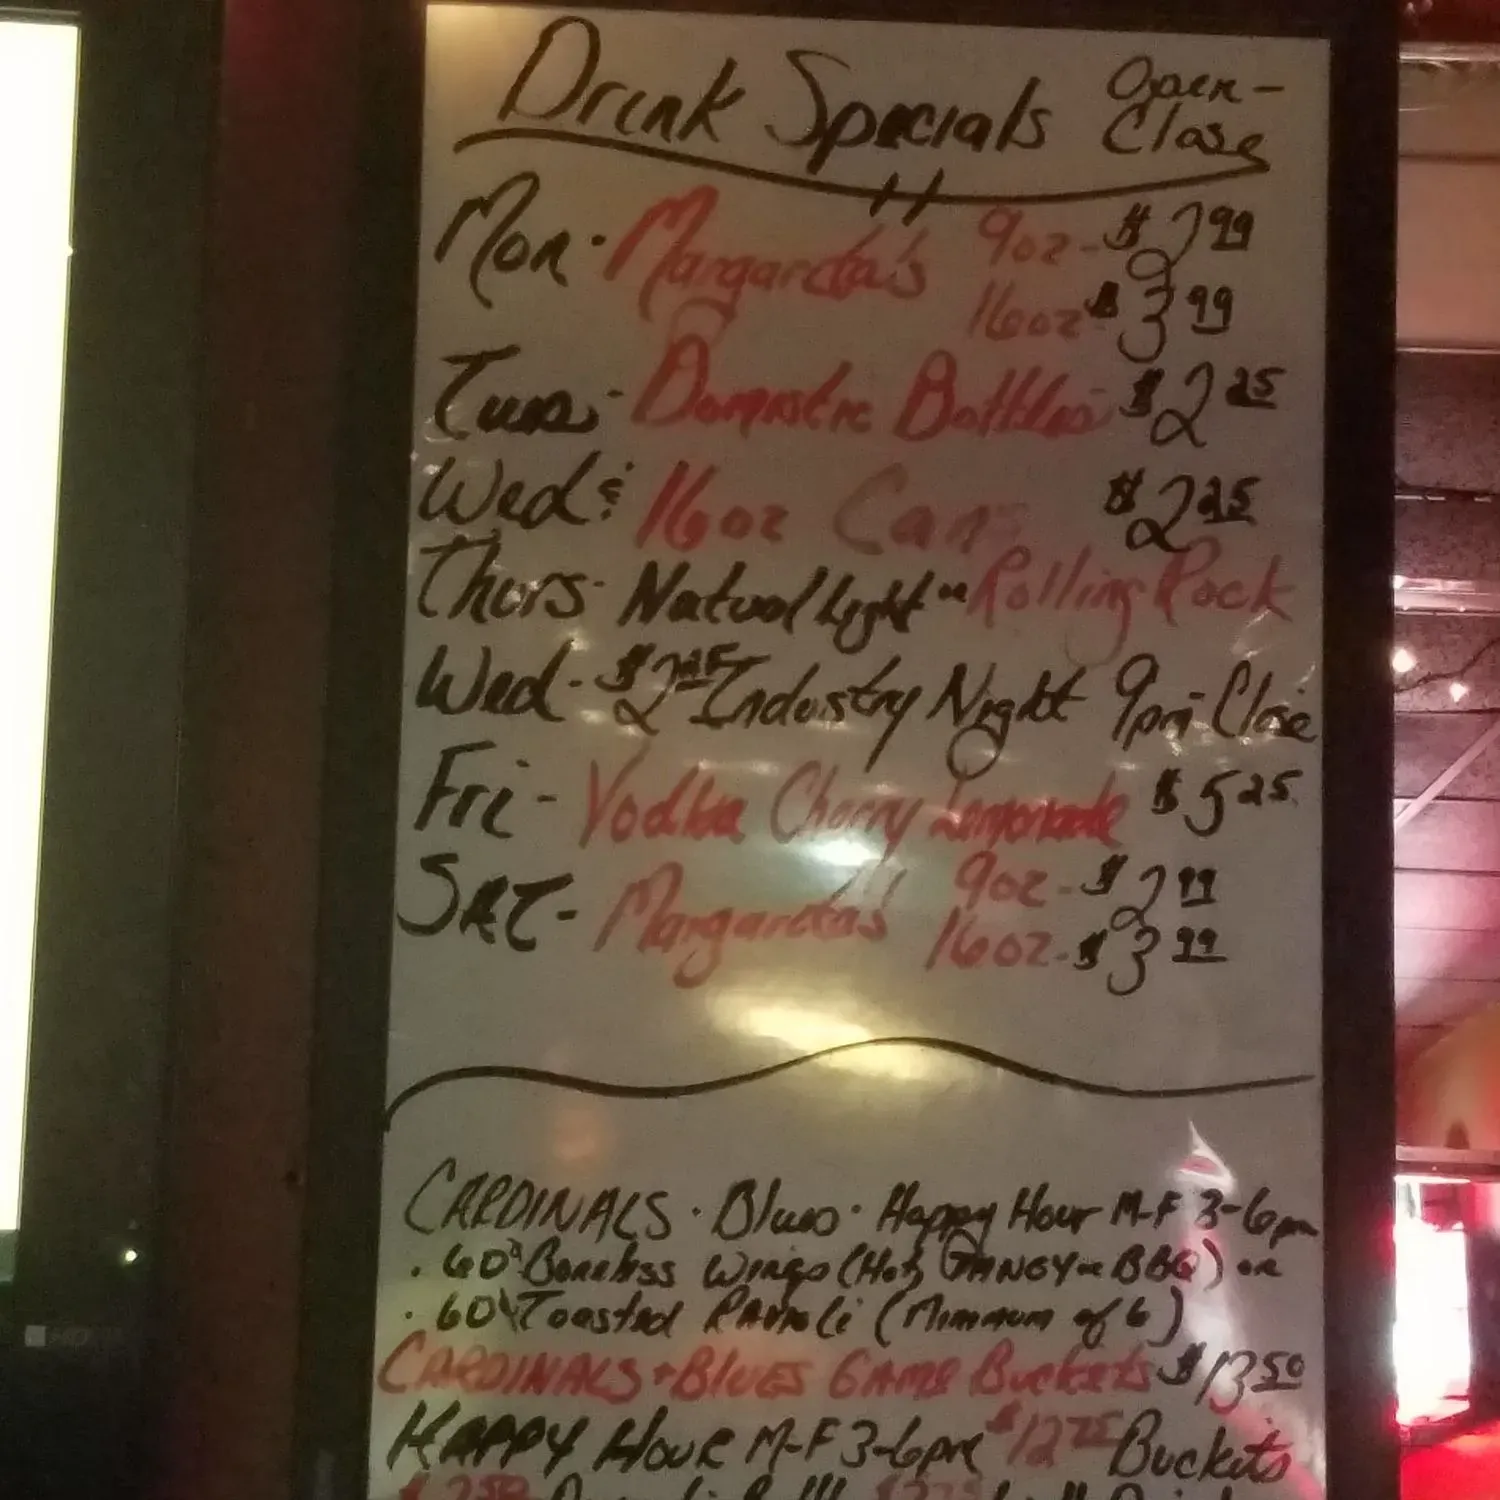 Drink Specials Open-
Close
Mon. Margarita's 9oz - $2.99
16oz - $3.99
Tues - Domestic Bottles $2.25
Wed & 16oz Cans $2.25
Thurs - Natural Light or Rolling Rock
Wed - $2.25 Industry Night 9pm-Close
Fri - Vodka Cherry Lemonade $5.25
SAT - Margarita's 9oz - $2.99
16oz - $3.99
CARDINALS · Blues · Happy Hour M-F 3-6pm
· 60¢ Boneless Wings (Hot, TANGY or BBQ) or
· 60¢ Toasted Ravioli (Minimum of 6)
CARDINALS + BLUES GAME Buckets $13.50
HAPPY HOUR M-F 3-6pm $12.75 Buckets